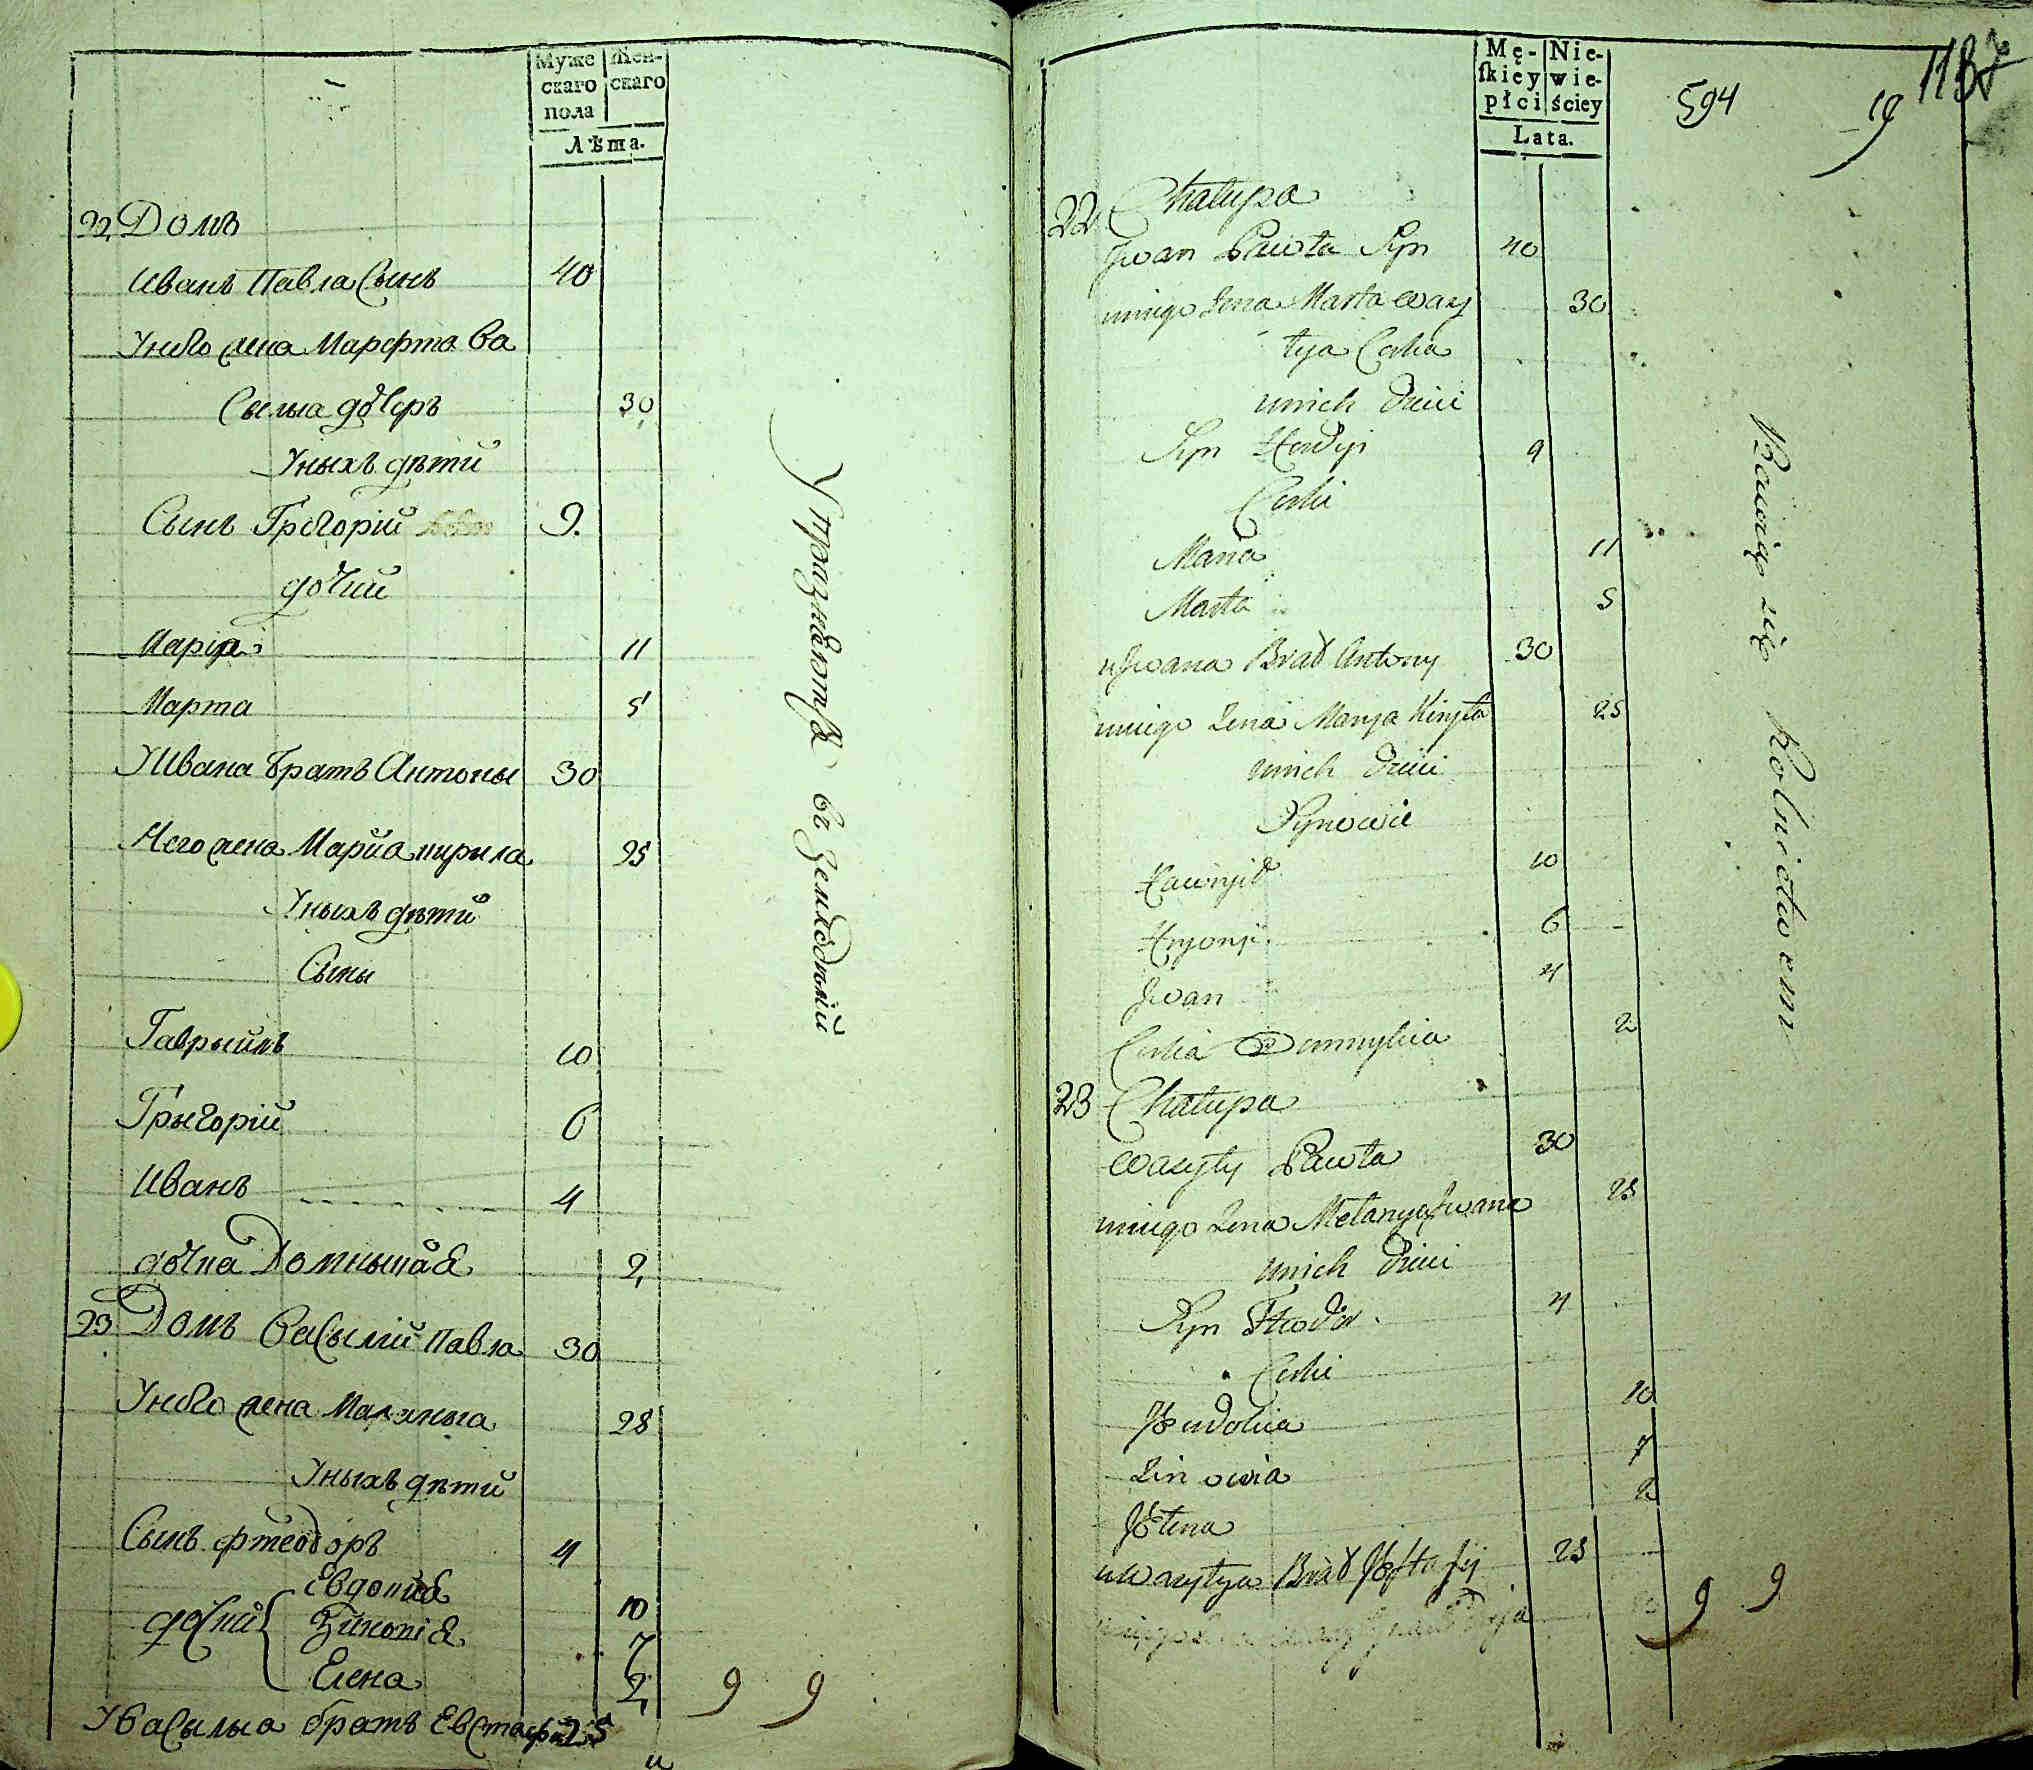 Муже
скаго
пола
Жен-
скаго
Лѣта.
22 Домъ
Иванъ Павла Сынъ 40
Унего жена Марфта Ва
Сылыа дочеръ 30
Уныхъ дѣти
Сынъ Грегорій 9.
дочки
Марія 11
Марта 5
УИвана братъ Антоны 30
Него жена Марйа кирыла 25
Уныхъ дѣти
Сыны
Гаврыилъ 10
Грыгорій 6
Иванъ 4
дочка Домныкіа 2
23 Домъ Васылій Павла 30
Унего жена Маланыа 28
Уныхъ дѣти
Сынъ фтеодоръ 4
дочки
Евдокиа 10
Зиновіа 7
Елена 2
УВасылыа братъ Евстафій 25
и
9 9
Упражняются въ Земледѣлій
Mę-
skiey
płci
Nie-
wie-
ściey
Lata.
594
19
22 Chałupa
Jwan Pawła Syn 40
uniego Zena Marta Wasy 30
łya Corka
unich Dzieci
Syn Hrehory 9
Corki
Maria 11
Marta 5
uJwana Brat Antony 30
uniego Zena Marya Kiryła 25
unich Dzieci
Synowie
Hawryił 10
Hryhory 6
Jwan 4
Corka Domnykia 2
23 Chałupa
Wasyły Pawła 30
uniego Zena Mełanya Jwana 28
unich Dzieci
Syn Fteodor 4
Corki
Jewdokia 10
Zinowia 7
Jełena 2
uWasyłya Brat Jewstafij 25
9 9
Bawią się Rolnictwem